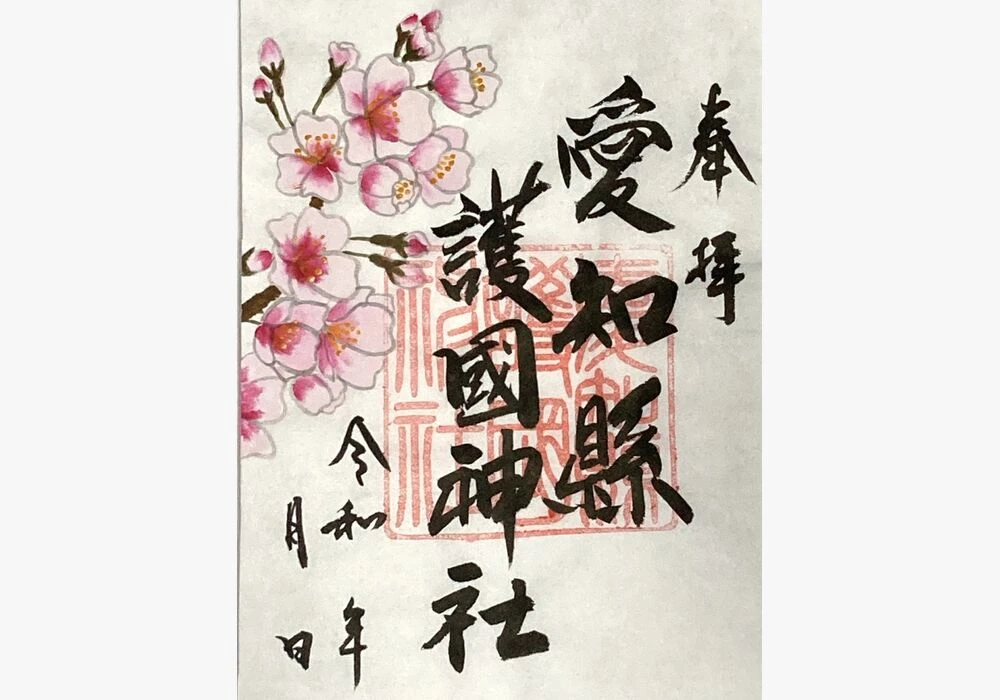 奉拝
愛知縣
護國神社
令和 年
月 日